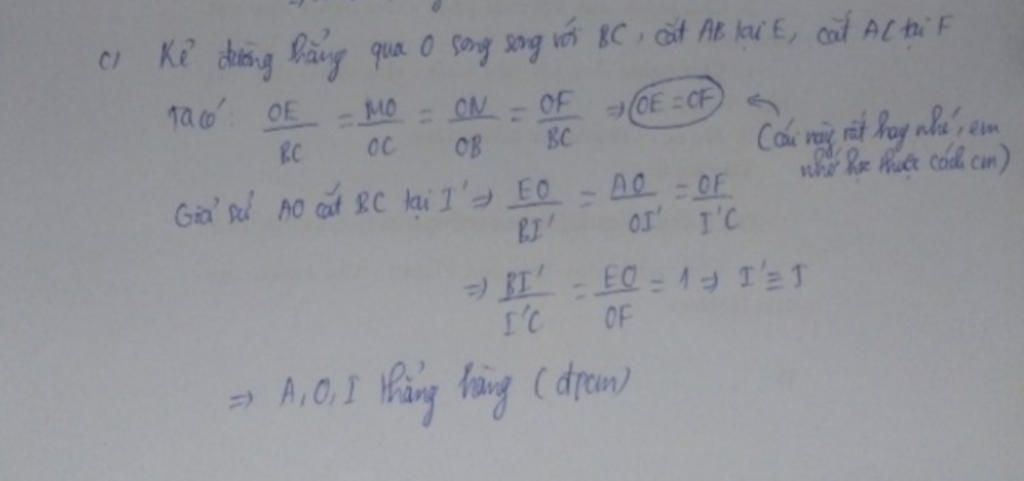 c) Kẻ đường thẳng qua O song song với BC, cắt AB tại E, cắt AC tại F
Ta có: OE/BC = MO/OC = ON/OB = OF/BC ⇒ OE = OF
(câu này rất hay nhé, em
nhớ học thuộc cách cm)
Giả sử AO cắt BC tại I' ⇒ EO/BI' = AO/OI' = OF/I'C
⇒ BI'/I'C = EO/OF = 1 ⇒ I' ≡ I
⇒ A, O, I thẳng hàng (đpcm)